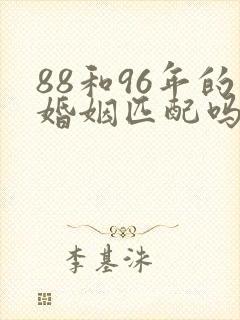 88和96年的
婚姻匹配吗
李基洙